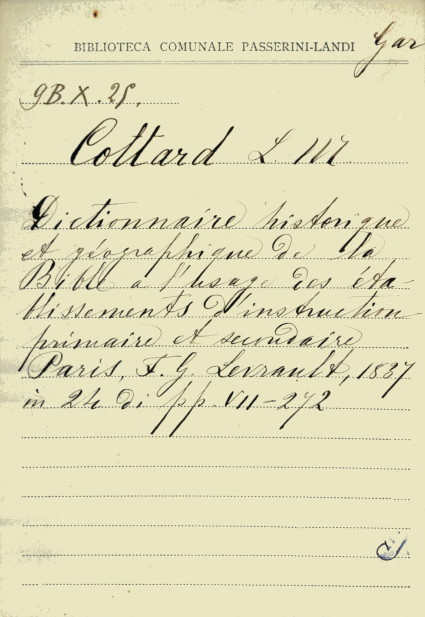 BIBLIOTECA COMUNALE PASSERINI-LANDI
Gar
9B.X.25.
Cottard L. M.
Dictionnaire historique
et géographique de la
Bible a l'usage des éta-
blissements d'instruction
primaire et secondaire
Paris, F. G. Levrault, 1837
in 24 di pp. VII-272